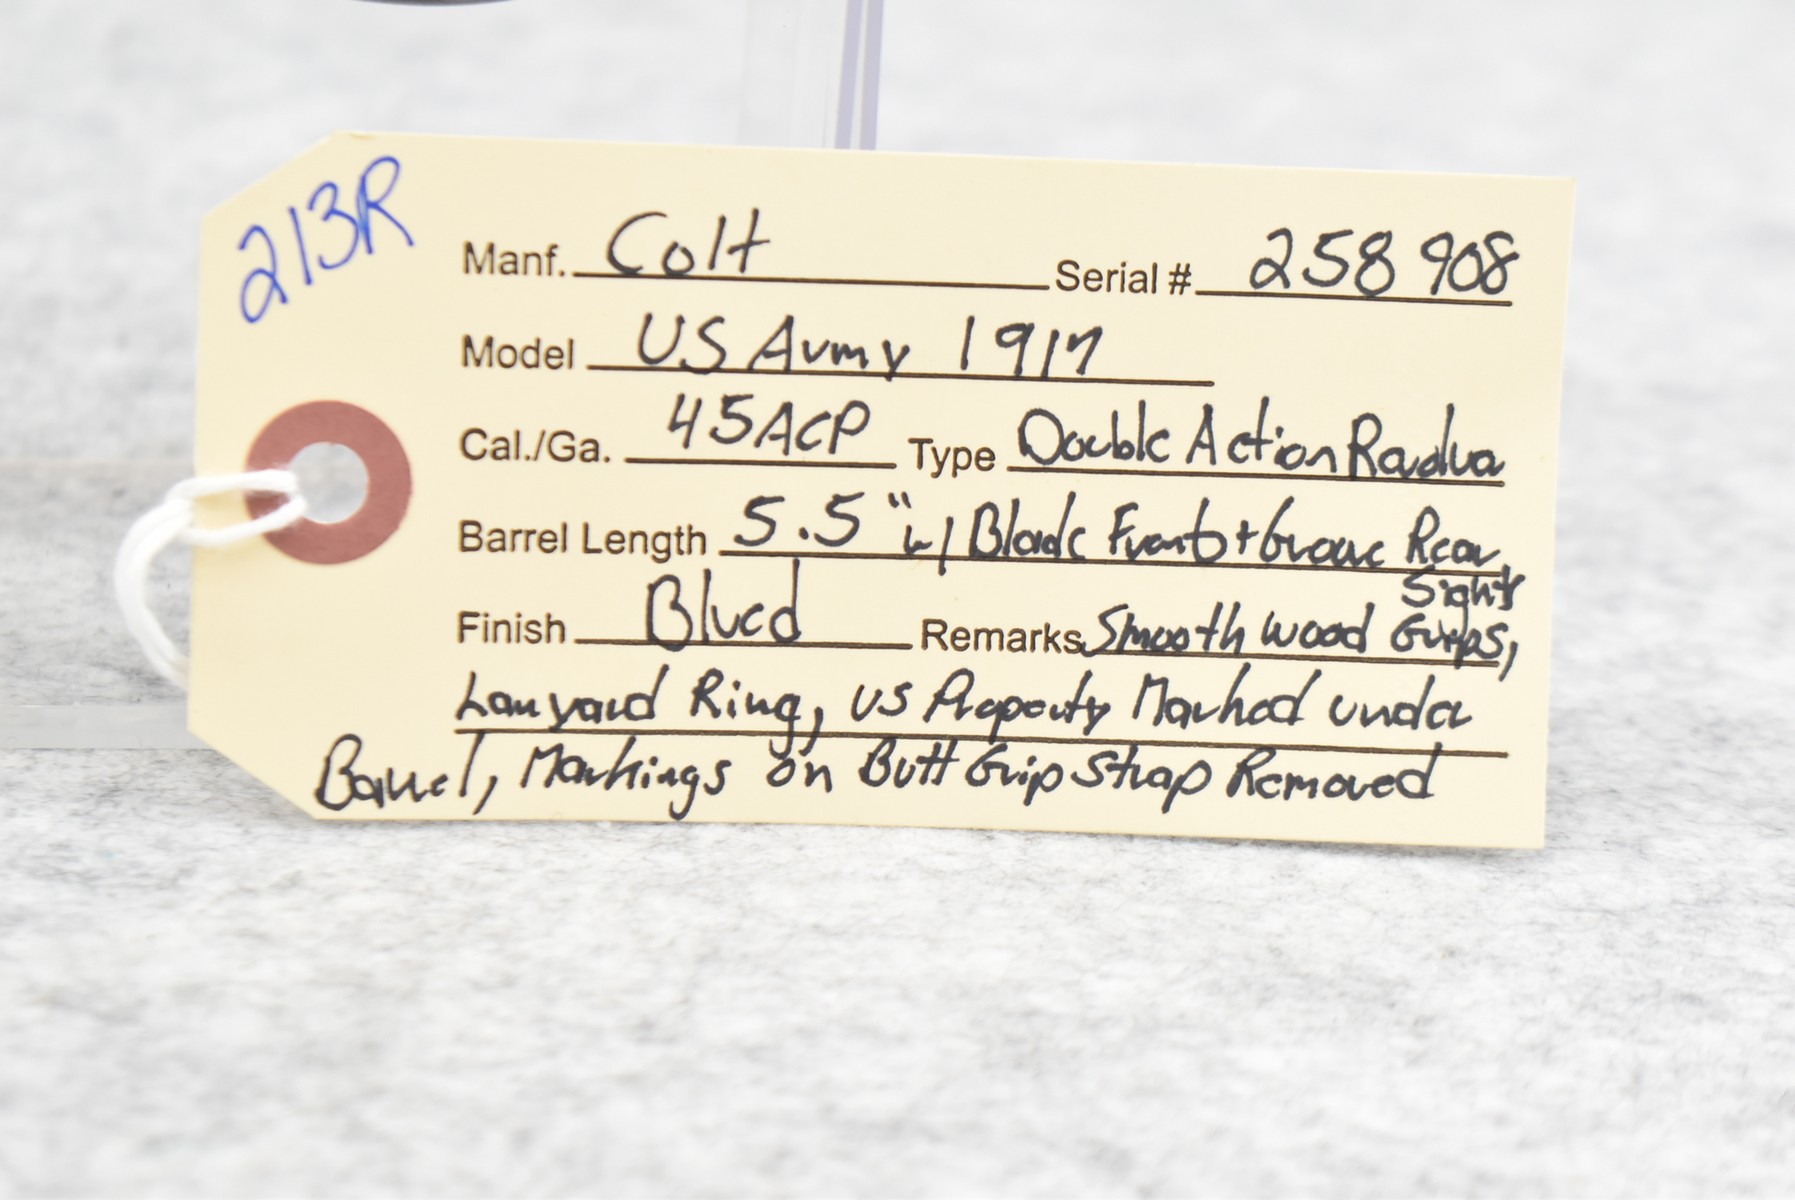 213R
Manf. Colt Serial # 258908
Model US Army 1917
Cal./Ga. 45ACP Type Double Action
Barrel Length 5.5" w/ Blade Front + Groove Rear
Sights
Finish Blued Remarks Smooth Wood Grips,
Lanyard Ring, US Property Marked under
Barrel, Markings on Butt Grip Strap Removed